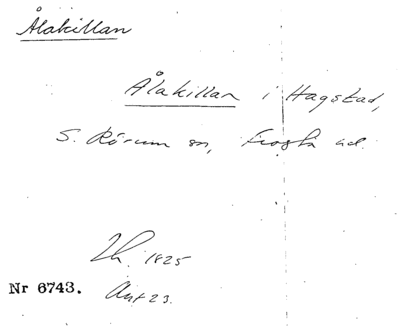 Ålakillan
Ålakillan i Hagstad,
S. Rörum sn, Frosta hd.
1825
Nr 6743. Ant 23.